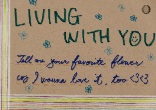 LIVING
WITH YOU
Tell me your favorite flower
cuz I wanna love it, too <3<3